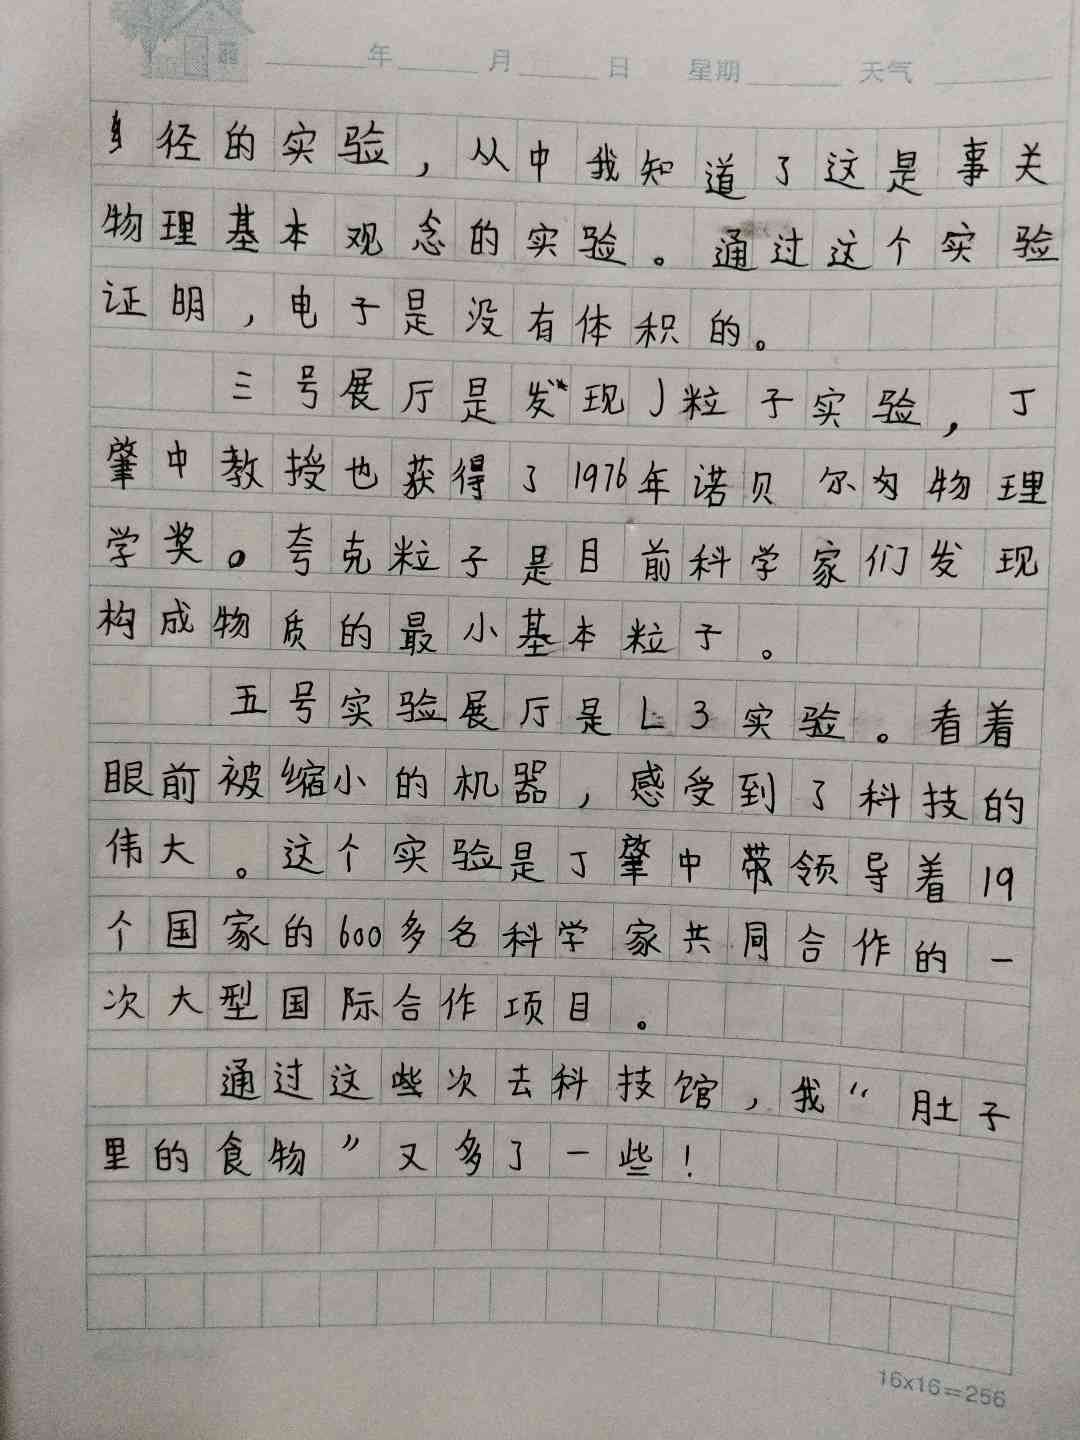 年 月 日 星期 天气
径的实验，从中我知道了这是事关
物理基本观念的实验。通过这个实验
证明，电子是没有体积的。
三号展厅是发现J粒子实验，丁
肇中教授也获得了1976年诺贝尔为物理
学奖。夸克粒子是目前科学家们发现
构成物质的最小基本粒子。
五号实验展厅是L3实验。看着
眼前被缩小的机器，感受到了科技的
伟大。这个实验是丁肇中带领导着19
个国家的600多名科学家共同合作的一
次大型国际合作项目。
通过这些次去科技馆，我“肚子
里的食物”又多了一些！
16x16=256